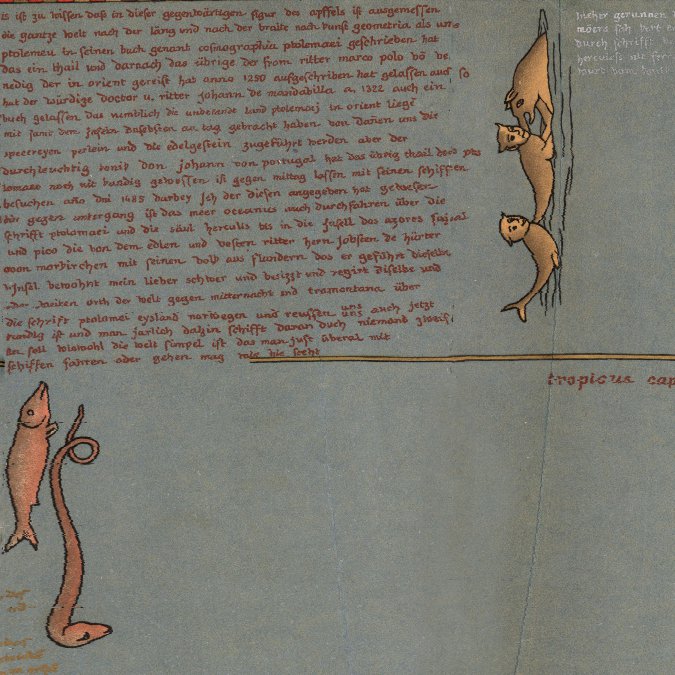 is ist zu wissen daß in dieser gegenwärtigen figur des apffels ist ausgemessen
die gantze welt nach der läng und nach der braite nach kunst geometria als uns
ptolemeu in seinen buch genant cosmographia ptolemaei geschrieben hat
das ein thail und darnach das übrige der from ritter marco polo vö ve
nedig der in orient gereist hat anno 1250 aufgeschriben hat gelassen auch so
hat der würdige doctor u. ritter johann de mandavilla a. 1322 auch ein
buch gelassen das die unbekandt land ptolemaj in orient liegt
mit samt dem jnseln daselbsten an tag gebracht haben von dañen uns die
specereyen perlein und die edelgestein zugeführt werden aber der
durchleuchtig könig don johann von portugal hat das übrig thail
tomaeo noch nit kundig gewessen ist gegen mittag lassen mit seinen schiffen
besuchen año dni 1485 darbey jch der diesen angegeben hat gewesen
gegen untergang ist das meer oceanus auch durchfahren über die
schrifft ptolamaei und die säul herculis bis in die jnsell dos azores faijal
und pico die von dem edlen und vesten ritter hern jobsten de hürter
moörkirchen mit seinen volk aus flandern dos er geführt dieselbn
jnsul bewohnt mein lieber schwer und besizst und regirt diselbe und
orth der welt gegen mitternacht und tramontana über
die schrift ptolemei eysland norwegen und reussen uns auch jetzt
kundig ist und man jarlich dahin schifft daran doch niemant zweifl
soll wiewohl die welt simpel ist das man just überal mit
schiffen fahren oder gehen mag wie hie steht
hieher gerunnen
möers sich
durch schrifft
tropicus cap